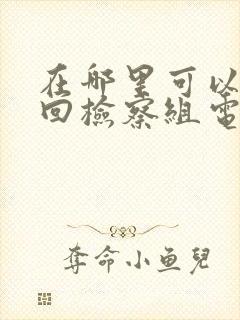 在哪里可以
回检察组电
夺命小鱼儿